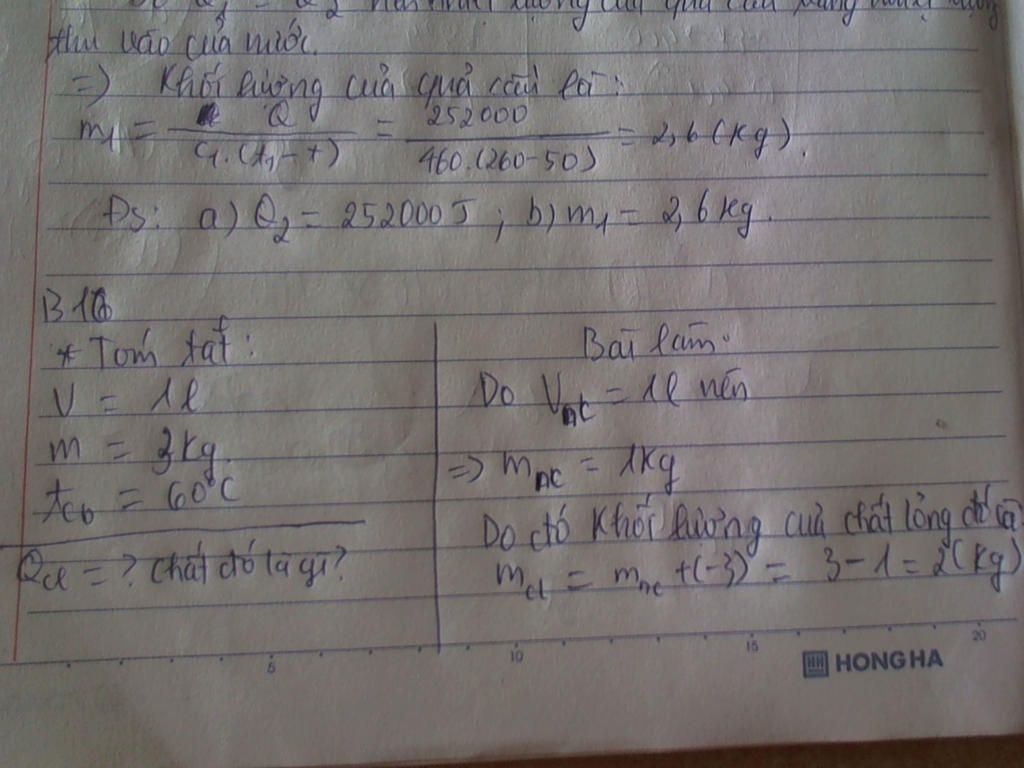 thu vào của nước.
=> Khối lượng của quả cầu là:
m1 = Q / C1.(t1 - t) = 252000 / 460.(260-50) = 2,6 (kg).
Đs: a) Q2 = 252000J ; b) m1 = 2,6kg.
B16
* Tóm tắt:
V = 1l
m = 3kg
tcb = 60°C
Qcl = ? chất đó là gì?
Bài làm.
Do Vnc = 1l nên
=> mnc = 1kg
Do đó khối lượng của chất lỏng đó là
mcl = mnc +(-3) = 3-1 = 2(kg)
5 10 15 20
HONG HA